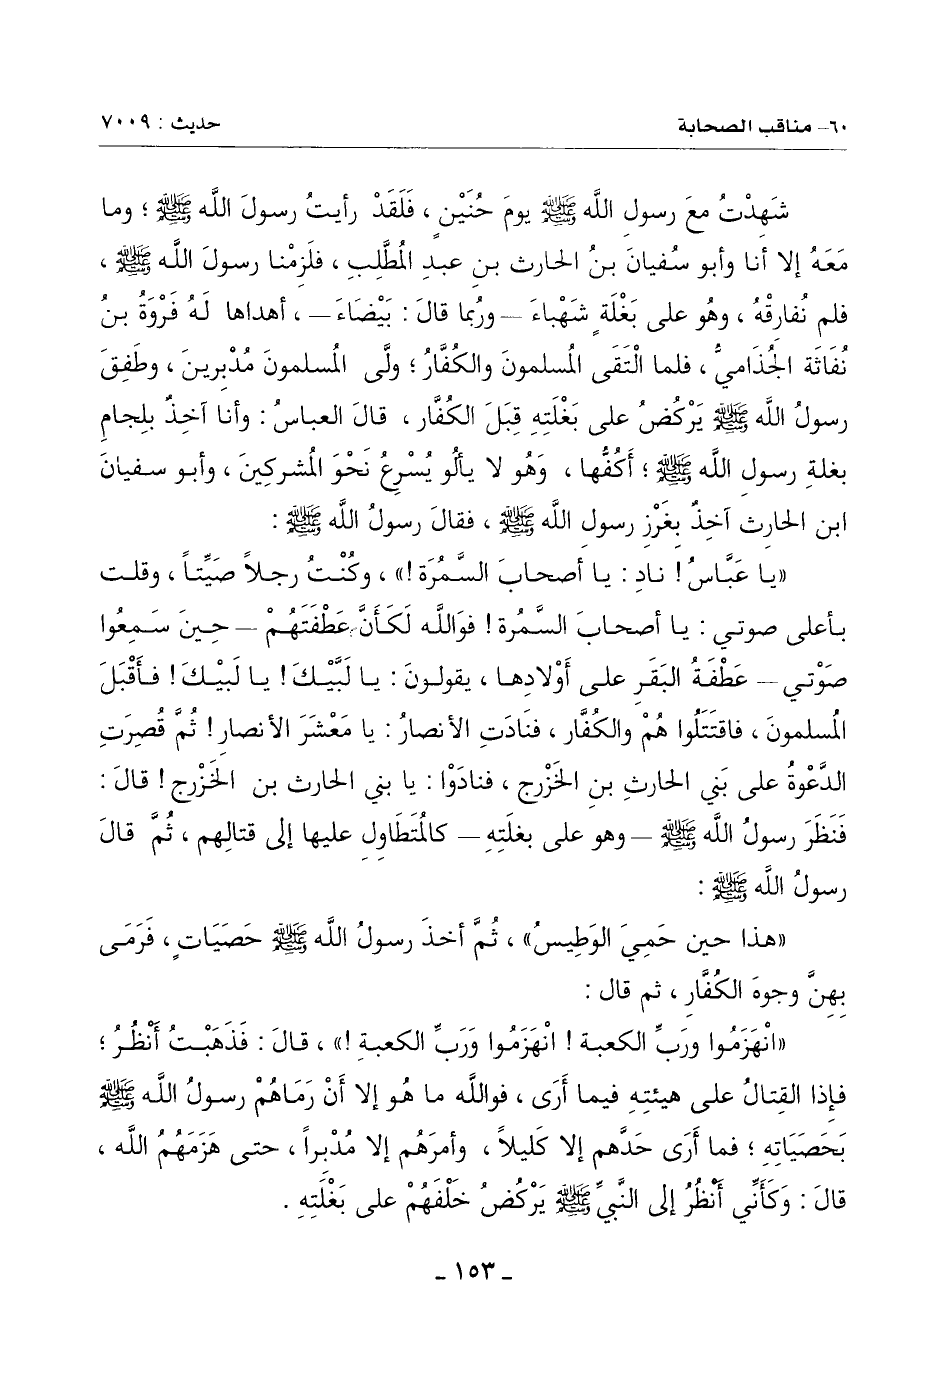 ٦٠- مناقب الصحابة حديث : ٧٠٠٩
شَهِدْتُ معَ رسولِ اللَّه ﷺ يومَ حُنَيْنٍ ، فَلَقَدْ رأيتُ رسولَ اللَّه ﷺ ؛ وما
مَعَهُ إلا أنا وأبو سُفيانَ بنُ الحارث بنِ عبدِ المُطَّلِبِ ، فلَزِمْنا رسولَ اللَّه ﷺ ،
فلم نُفارِقْهُ ، وهُو على بَغْلَةٍ شَهْباءَ –ورُبما قالَ : بَيْضَاءَ– ، أهداها لَهُ فَرْوَةُ بنُ
نُفَاثَة الجُذَاميُّ ، فلما الْتَقَى المُسلمونَ والكُفَّارُ ؛ ولَّى المُسلمونَ مُدْبِرينَ ، وطَفِقَ
رسولُ اللَّه ﷺ يَرْكُضُ على بَغْلَتِهِ قِبَلَ الكُفَّارِ ، قالَ العباسُ : وأنا آخِذٌ بِلجامِ
بغلةِ رسولِ اللَّهِ ﷺ ؛ أَكُفُّها ، وَهُو لا يألُو يُسْرِعُ نَحْوَ المُشركِينَ ، وأبو سفيانَ
ابن الحارِث آخِذٌ بِغَرْزِ رسولِ اللَّه ﷺ ، فقالَ رسولُ اللَّه ﷺ :
«يا عَبَّاسُ ! نادِ : يا أصحابَ السَّمُرَة !» ، وكُنْتُ رجلاً صَيِّتاً ، وقلت
بأعلى صوتي : يا أصحابَ السَّمُرة ! فوَاللَّه لَكَأَنَّ عَطْفَتَهُمْ –حِينَ سَمِعُوا
صَوْتي– عَطْفَةُ البَقَرِ على أَوْلادِها ، يقولونَ : يا لَبَّيْكَ ! يا لَبيْكَ ! فأَقْبَلَ
المُسلمونَ ، فاقتَتَلُوا هُمْ والكُفَّار ، فنَادَتِ الأنصارُ : يا مَعْشَرَ الأنصار ! ثُمَّ قُصِرَتِ
الدَّعْوةُ على بَني الحارثِ بنِ الخَزْرج ، فنادَوْا : يا بني الحارث بن الخَزْرج ! قالَ :
فَنَظَرَ رسولُ اللَّه ﷺ –وهو على بغلَتِهِ– كالمُتَطَاوِلِ عليها إلى قتالِهم ، ثُمَّ قالَ
رسولُ اللَّه ﷺ :
«هذا حين حَمِيَ الوَطِيسُ» ، ثُمَّ أخذَ رسولُ اللَّه ﷺ حَصَيَاتٍ ، فَرَمَى
بِهِنَّ وجوهَ الكُفَّارِ ، ثم قال :
«انْهَزَمُوا ورَبِّ الكعبة ! انْهَزَمُوا وَرَبِّ الكعبةِ !» ، قالَ : فَذَهَبْتُ أَنْظُرُ ؛
فإذا القِتالُ على هيئتِهِ فيما أَرَى ، فواللَّه ما هُو إلا أَنْ رَمَاهُمْ رسولُ اللَّه ﷺ
بَحَصَيَاتِهِ ؛ فما أَرَى حَدَّهم إلا كَلِيلاً ، وأمرَهُم إلا مُدْبِراً ، حتى هَزَمَهُمُ اللَّه ،
قالَ : وَكَأَنِّي أَنْظُرُ إلى النَّبيِّ ﷺ يَرْكُضُ خَلْفَهُمْ على بَغْلَتِهِ .
- ١٥٣ -